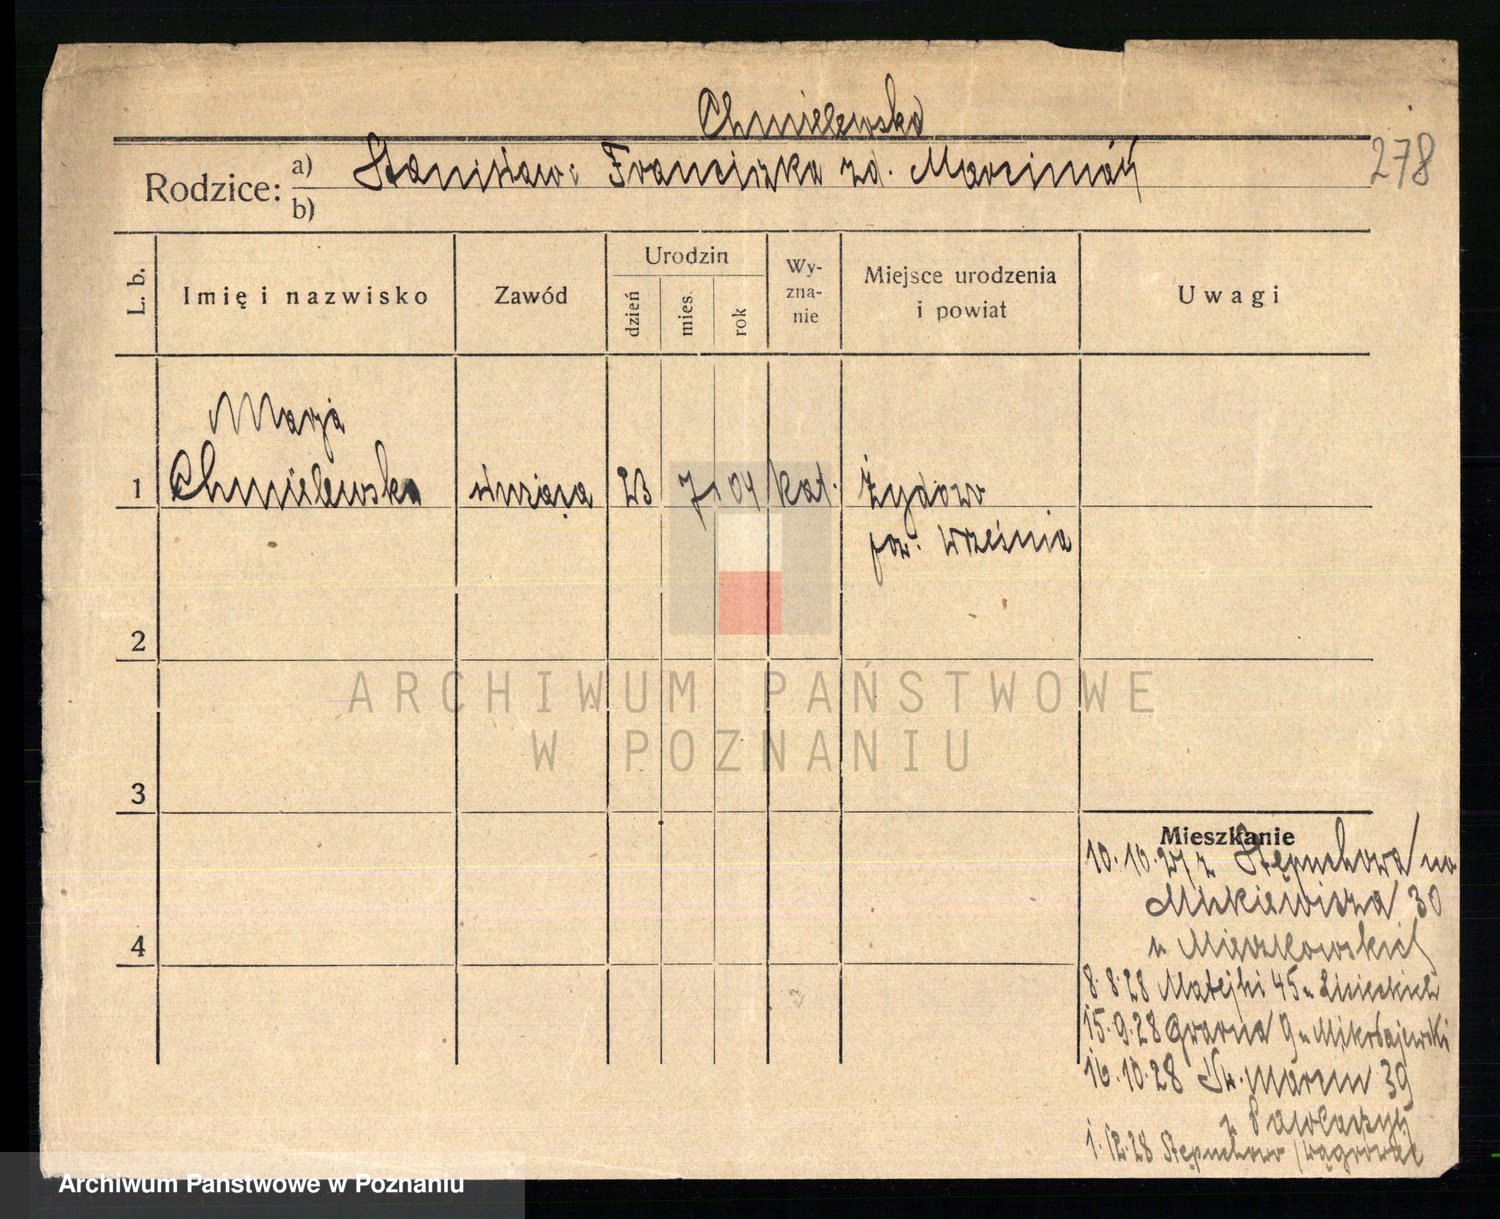 Chmielewska
278
Rodzice: a) Stanisław i Franciszka zd.
b)
L. b.
Imię i nazwisko
Zawód
Urodzin
dzień
mies.
rok
Wy-
zna-
nie
Miejsce urodzenia
i powiat
Uwagi
Marja
1 Chmielewska służąca 23 7 04 kat. Żydowo
pow. Września
2
ARCHIWUM PAŃSTWOWE
W POZNANIU
3
Mieszkanie
10.10.27 z Stępuchowa na
Mickiewicza 30
u
4
8.8.28 Matejki 45 u
15.9.28 9 u Mikołajewski
16.10.28 Św. Marcin 39
u
1.12.28 Stępuchowo / Wągrowiec
Archiwum Państwowe w Poznaniu